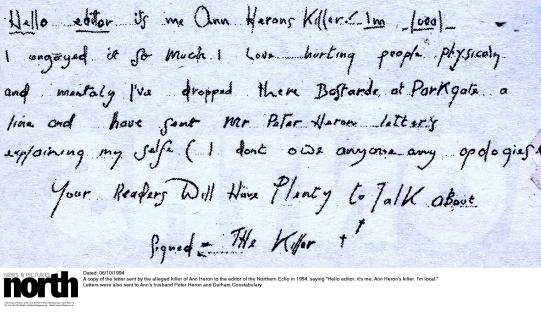 Hello editor it's me Ann Herons Killer! Im local
I engoyed it so much I Love hurting people physicaly
and mentaly I've dropped there Bastards at Parkgate a
line and have sent Mr Peter Heron letter's
explaining my selfe ( I dont owe anyone any apologies
Your Readers Will Have Plenty to Talk about
Signed THE Killer
NEWS & PICTURES
north
Dated: 06/10/1994
A copy of the letter sent by the alleged killer of Ann Heron to the editor of the Northern Echo in 1994, saying "Hello editor, it's me, Ann Heron's killer. I'm local."
Letters were also sent to Ann's husband Peter Heron and Durham Constabulary.